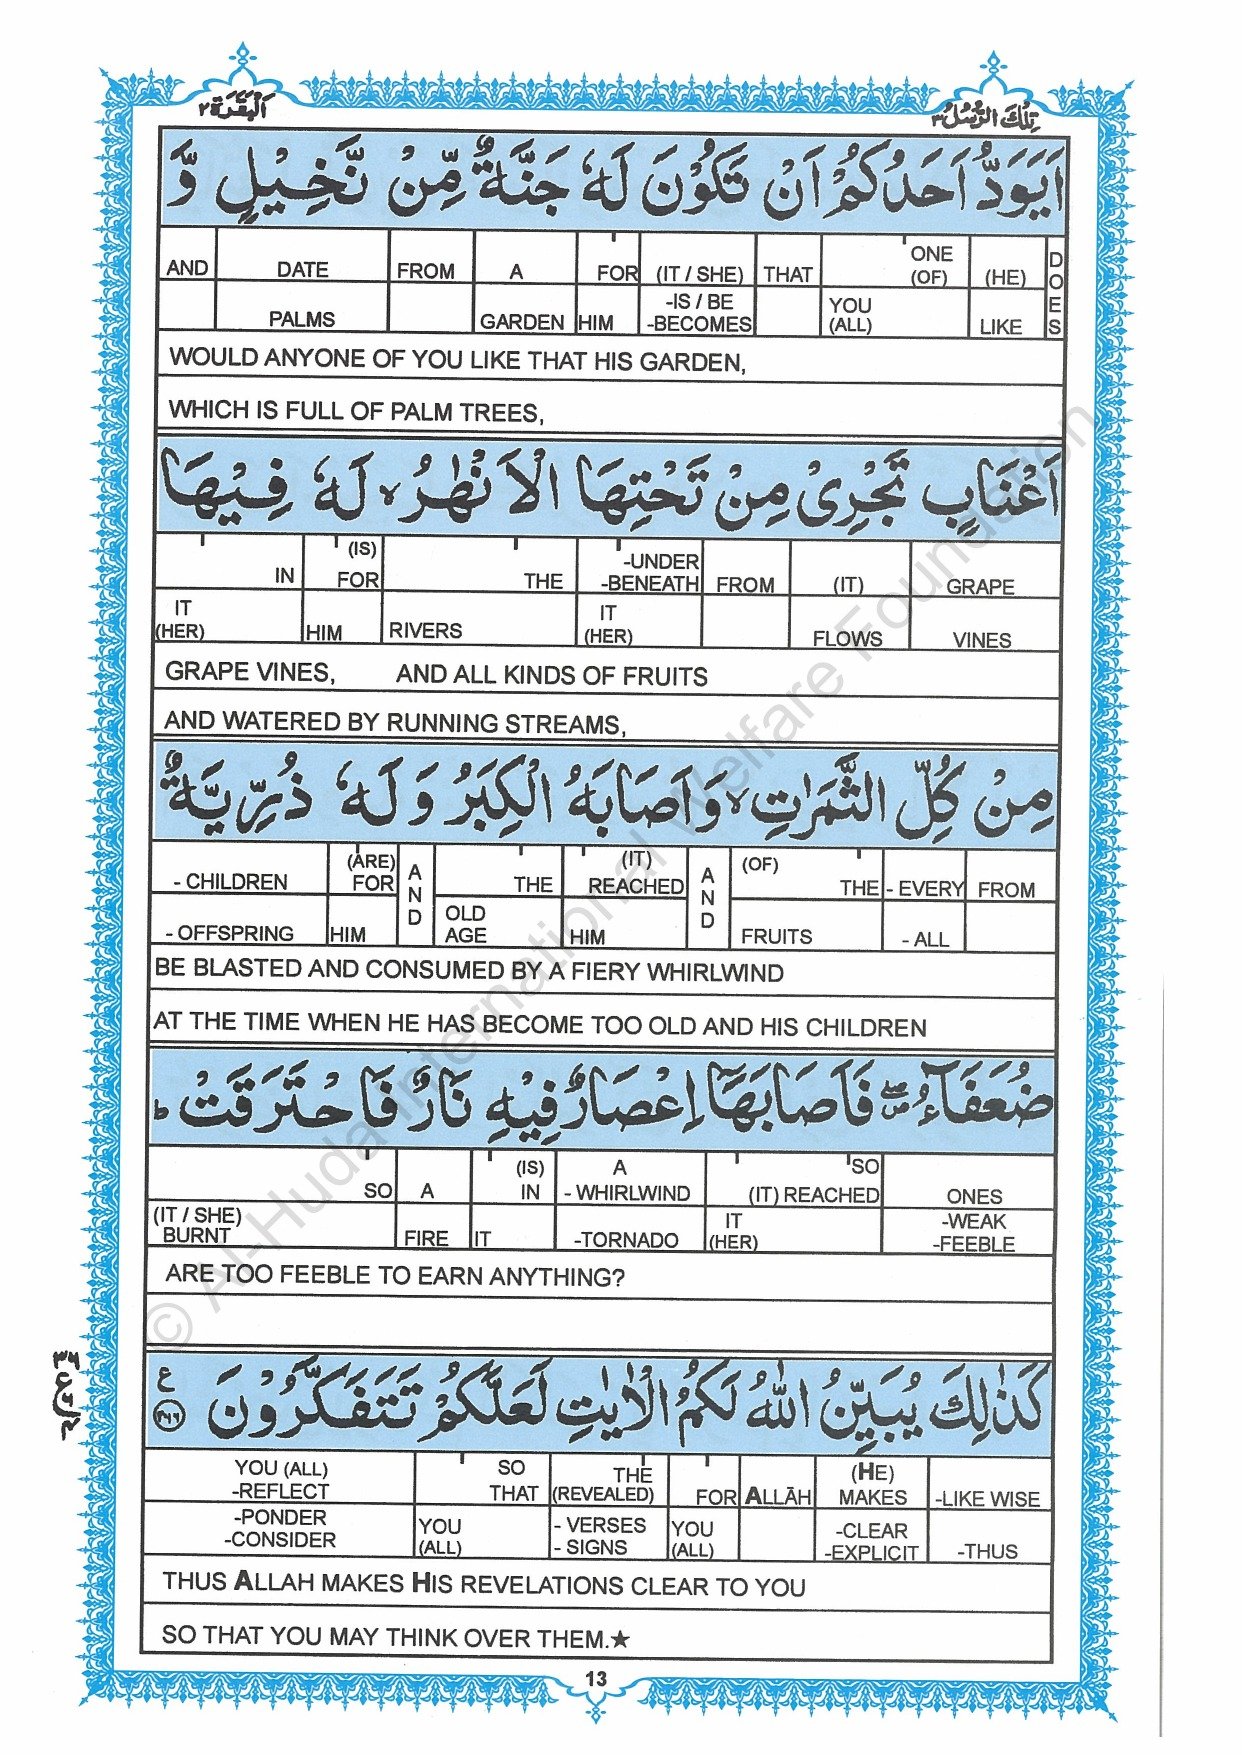 اَلْبَقَرَة ٢
تِلْكَ الرُّسُلُ ٣
اَيَوَدُّ اَحَدُكُمْ اَنْ تَكُوْنَ لَهٗ جَنَّةٌ مِّنْ نَّخِيْلٍ وَّ
AND DATE FROM A FOR (IT / SHE) THAT ONE (OF) (HE) DOES
PALMS GARDEN HIM -IS / BE -BECOMES YOU (ALL) LIKE
WOULD ANYONE OF YOU LIKE THAT HIS GARDEN,
WHICH IS FULL OF PALM TREES,
اَعْنَابٍ تَجْرِىْ مِنْ تَحْتِهَا الْاَنْهٰرُ ۙ لَهٗ فِيْهَا
IN (IS) FOR THE -UNDER -BENEATH FROM (IT) GRAPE
IT (HER) HIM RIVERS IT (HER) FLOWS VINES
GRAPE VINES, AND ALL KINDS OF FRUITS
AND WATERED BY RUNNING STREAMS,
مِنْ كُلِّ الثَّمَرٰتِ ۙ وَاَصَابَهُ الْكِبَرُ وَلَهٗ ذُرِّيَّةٌ
- CHILDREN (ARE) FOR AND THE (IT) REACHED AND (OF) THE - EVERY FROM
- OFFSPRING HIM OLD AGE HIM FRUITS - ALL
BE BLASTED AND CONSUMED BY A FIERY WHIRLWIND
AT THE TIME WHEN HE HAS BECOME TOO OLD AND HIS CHILDREN
ضُعَفَآءُ ۖ فَاَصَابَهَاۤ اِعْصَارٌ فِيْهِ نَارٌ فَاحْتَرَقَتْ ؕ
SO A (IS) IN A - WHIRLWIND SO (IT) REACHED ONES
(IT / SHE) BURNT FIRE IT -TORNADO IT (HER) -WEAK -FEEBLE
ARE TOO FEEBLE TO EARN ANYTHING?
كَذٰلِكَ يُبَيِّنُ اللّٰهُ لَكُمُ الْاٰيٰتِ لَعَلَّكُمْ تَتَفَكَّرُوْنَ ٢٦٦ ع
YOU (ALL) -REFLECT SO THAT THE (REVEALED) FOR ALLĀH (HE) MAKES -LIKE WISE
-PONDER -CONSIDER YOU (ALL) - VERSES - SIGNS YOU (ALL) -CLEAR -EXPLICIT -THUS
THUS ALLAH MAKES HIS REVELATIONS CLEAR TO YOU
SO THAT YOU MAY THINK OVER THEM.★
13
© Al-Huda International Welfare Foundation